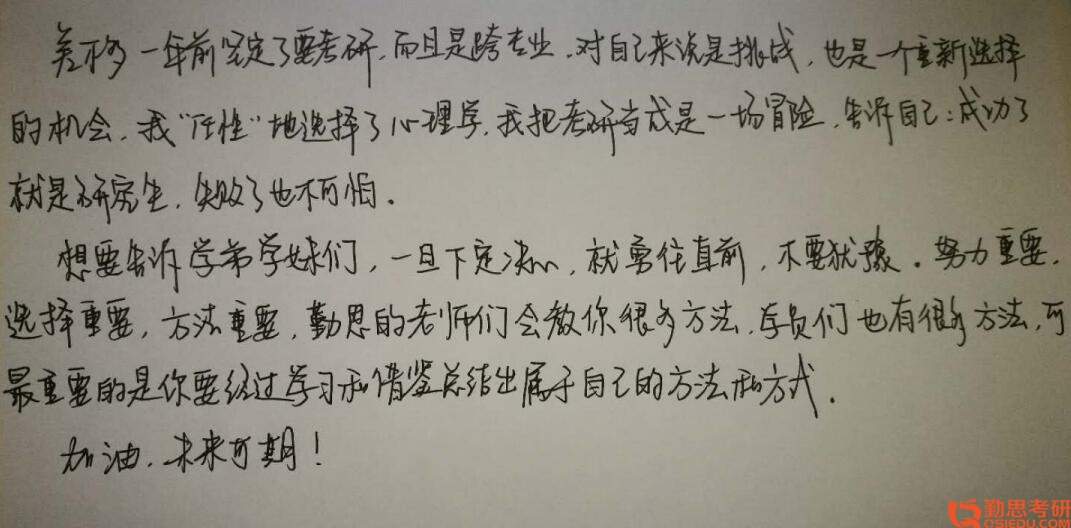 差不多一年前坚定了要考研，而且是跨专业，对自己来说是挑战，也是一个重新选择
的机会，我“任性”地选择了心理学，我把考研当成是一场冒险，告诉自己：成功了
就是研究生，失败了也不可怕。
想要告诉学弟学妹们，一旦下定决心，就勇往直前，不要犹豫。努力重要，
选择重要，方法重要，勤思的老师们会教你很多方法，学员们也有很多方法，可
最重要的是你要经过学习和借鉴总结出属于自己的方法和方式。
加油，未来可期！
勤思考研
QSIEDU.COM